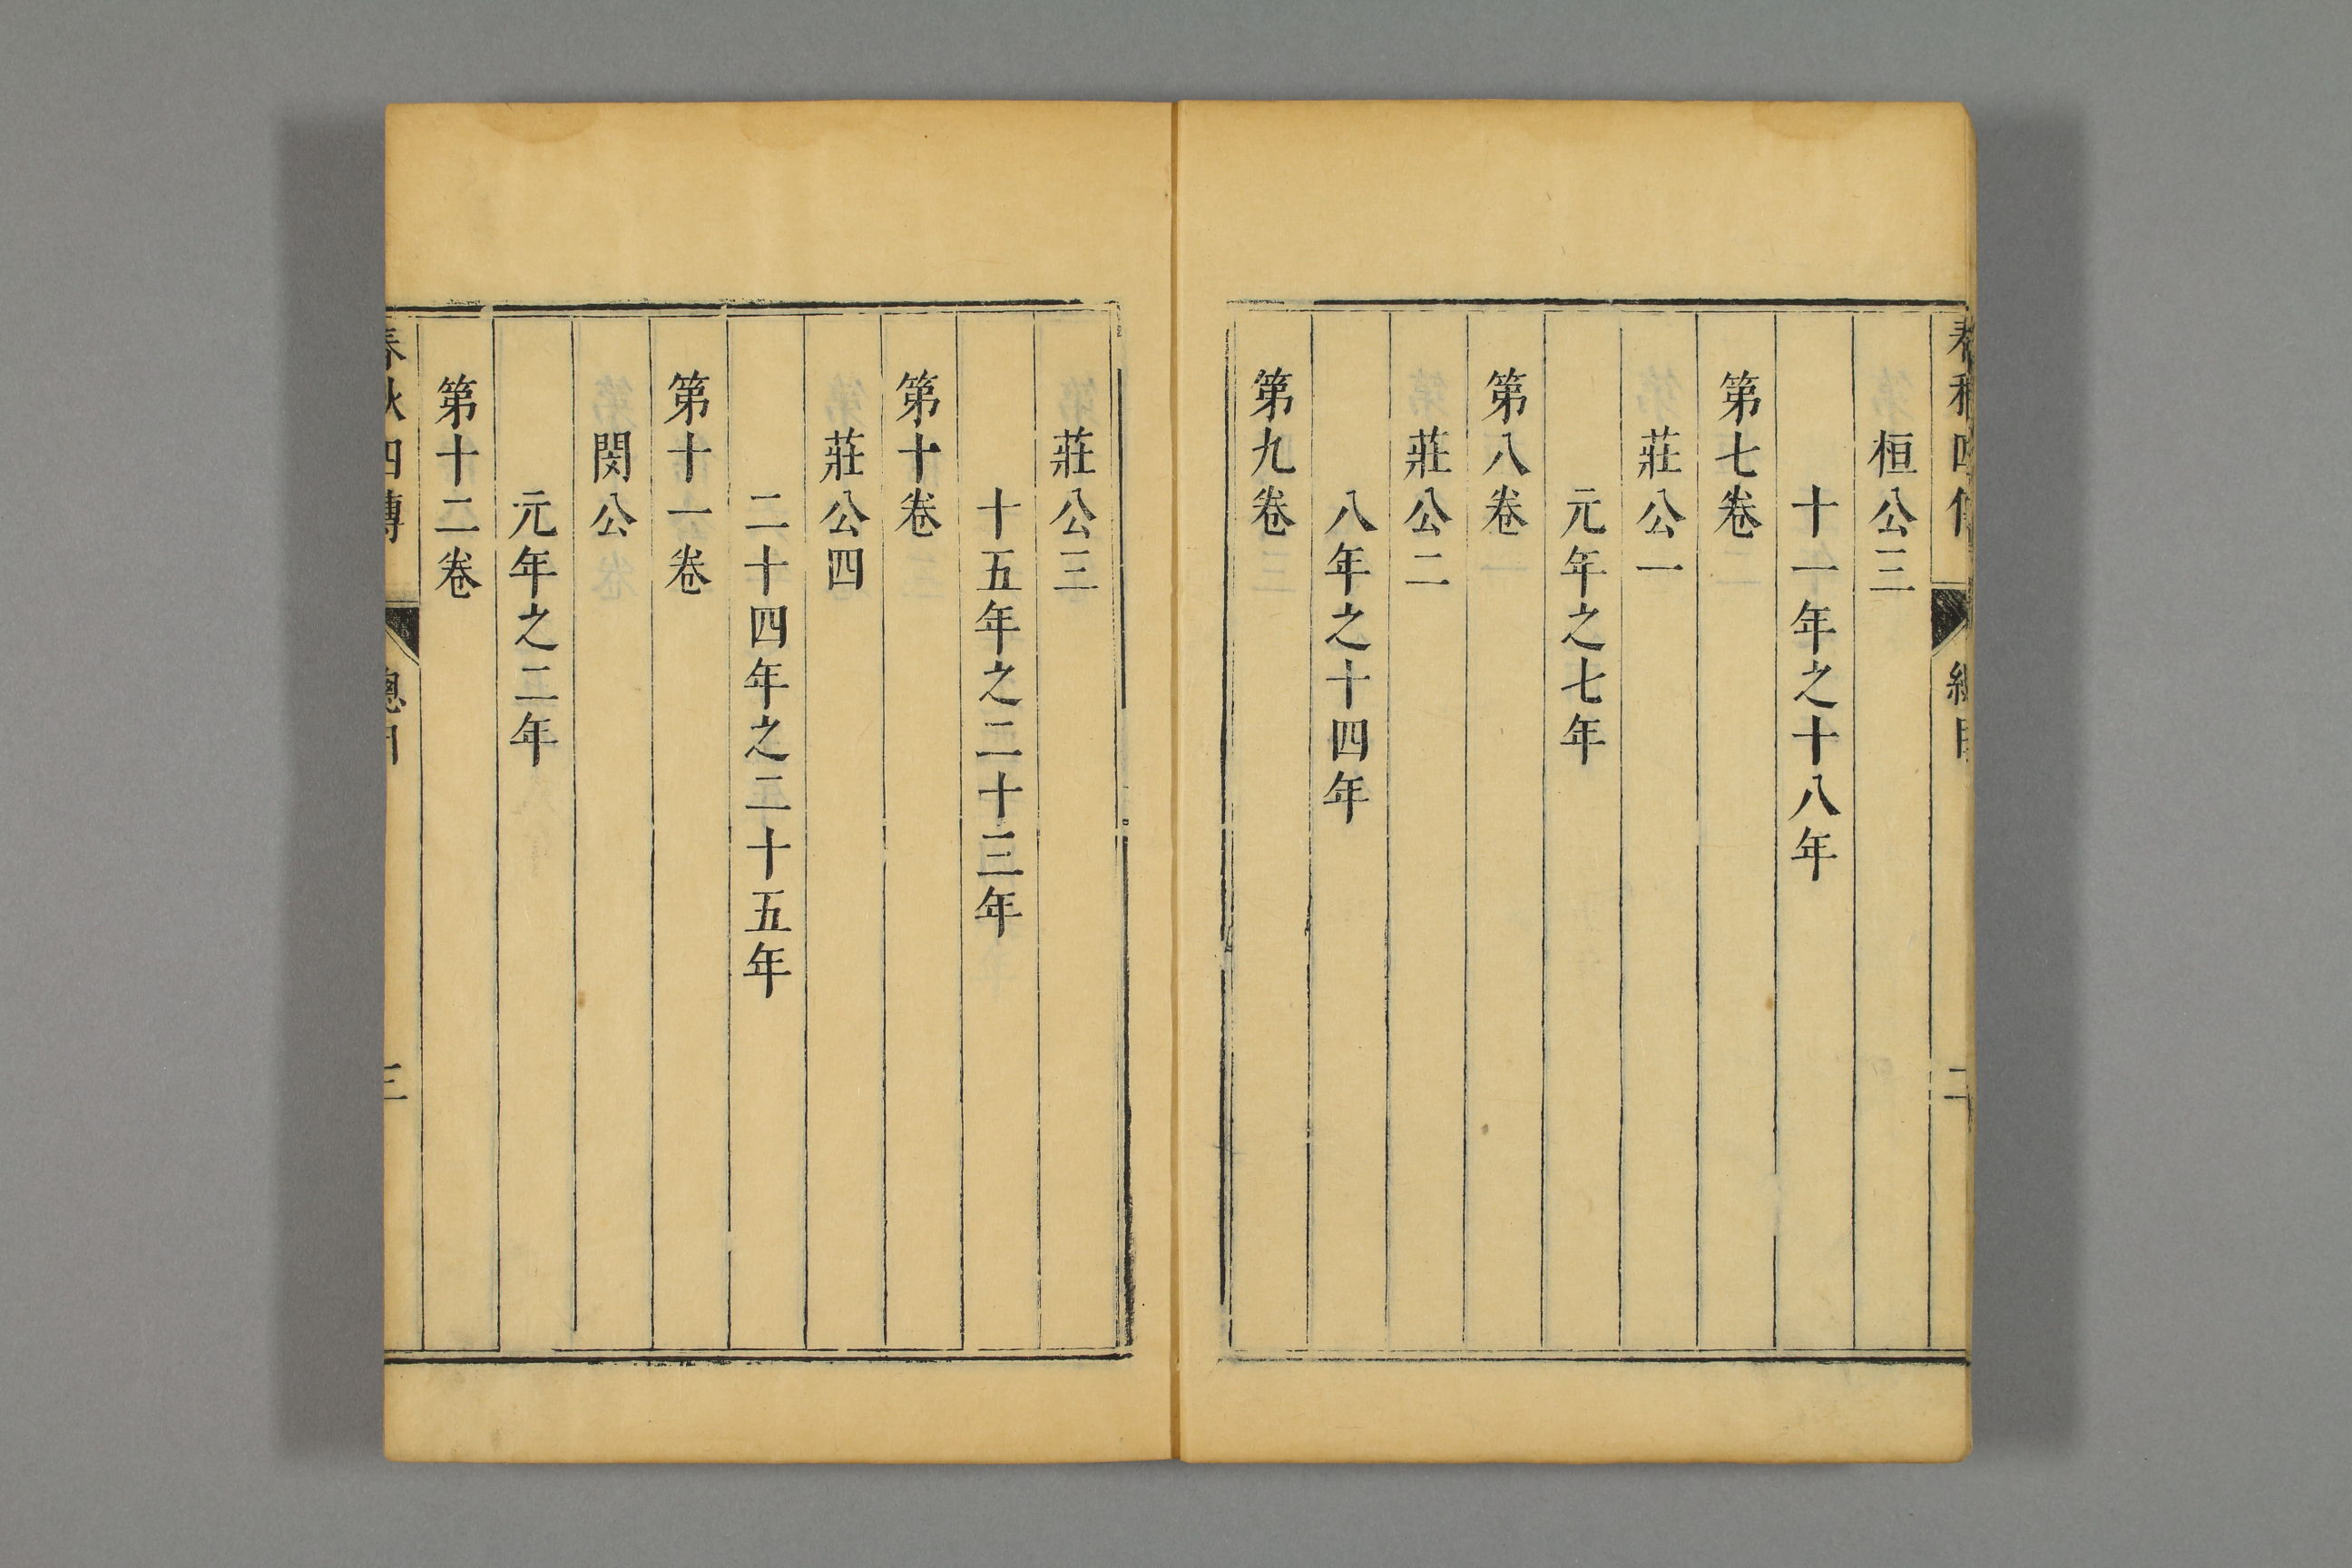 春秋四傳 總目 二
桓公三
十一年之十八年
第七卷
莊公一
元年之七年
第八卷
莊公二
八年之十四年
第九卷
莊公三
十五年之二十三年
第十卷
莊公四
二十四年之三十五年
第十一卷
閔公
元年之二年
第十二卷
春秋四傳 總目 三